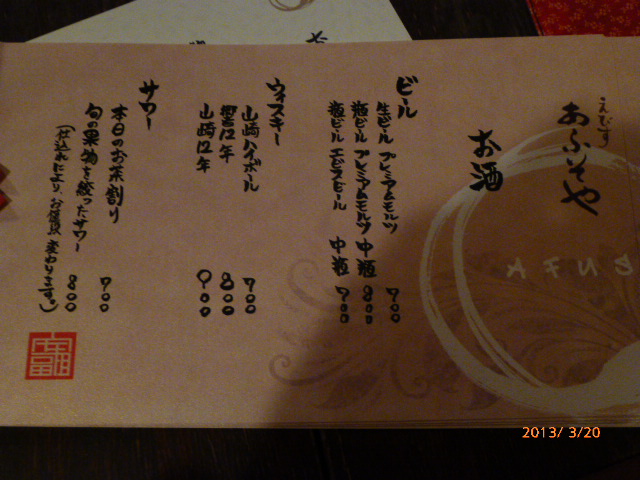 えびす
あふそや
お酒
ビール
生ビール プレミアムモルツ 700
瓶ビール プレミアムモルツ 中瓶 800
瓶ビール エビスビール 中瓶 700
ウィスキー
山崎ハイボール 700
響12年 800
山崎12年 900
サワー
本日のお茶割り 700
旬の果物を絞ったサワー 800
(仕込れにより、お値段変わります。)
2013/ 3/20